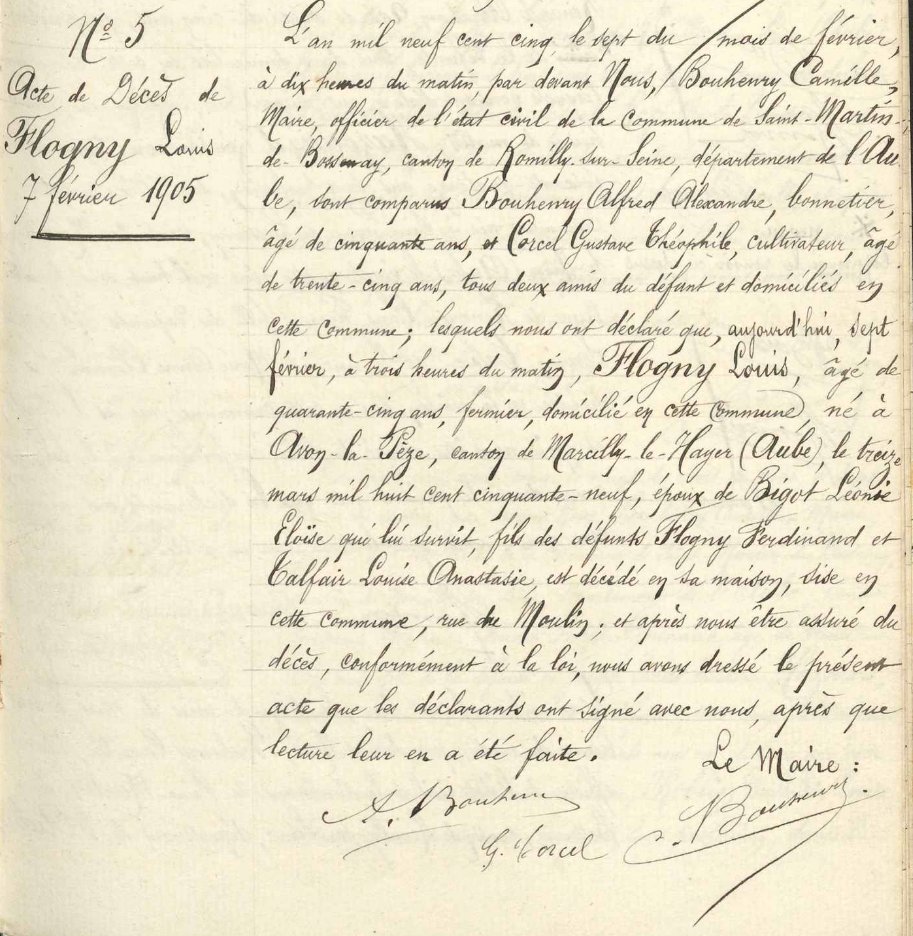 Nº 5
Acte de Décès de
Flogny Louis
7 février 1905
L'an mil neuf cent cinq le sept du mois de février,
à dix heures du matin, par devant Nous, Bouhenry Camille,
Maire, officier de l'état civil de la Commune de Saint-Martin-
de-Bossenay, canton de Romilly-sur-Seine, département de l'Au
be, sont comparus Bouhenry Alfred Alexandre, bonnetier,
âgé de cinquante ans, et Corcel Gustave Théophile, cultivateur, âgé
de trente-cinq ans, tous deux amis du défunt et domiciliés en
cette commune ; lesquels nous ont déclaré que, aujourd'hui, sept
février, à trois heures du matin, Flogny Louis, âgé de
quarante-cinq ans, fermier, domicilié en cette commune, né à
Avon-la-Pèze, canton de Marcilly-le-Hayer (Aube), le treize
mars mil huit cent cinquante-neuf, époux de Bigot Léonie
Eloïse qui lui survit, fils des défunts Flogny Ferdinand et
Talfair Louise Anastasie, est décédé en sa maison, sise en
cette commune, rue du Moulin ; et après nous être assuré du
décès, conformément à la loi, nous avons dressé le présent
acte que les déclarants ont signé avec nous, après que
lecture leur en a été faite.
Le Maire :
A. Bouhenry
C. Bouhenry
G. Corcel